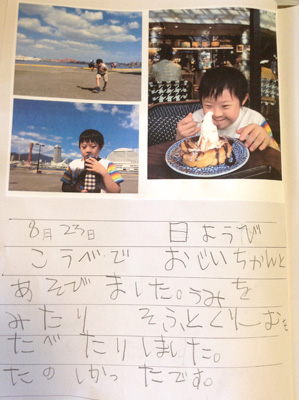 8月23日 日ようび
こうべで おじいちゃんと
あそびました。うみを
みたり そふとくりーむを
たべたりしました。
たのしかったです。